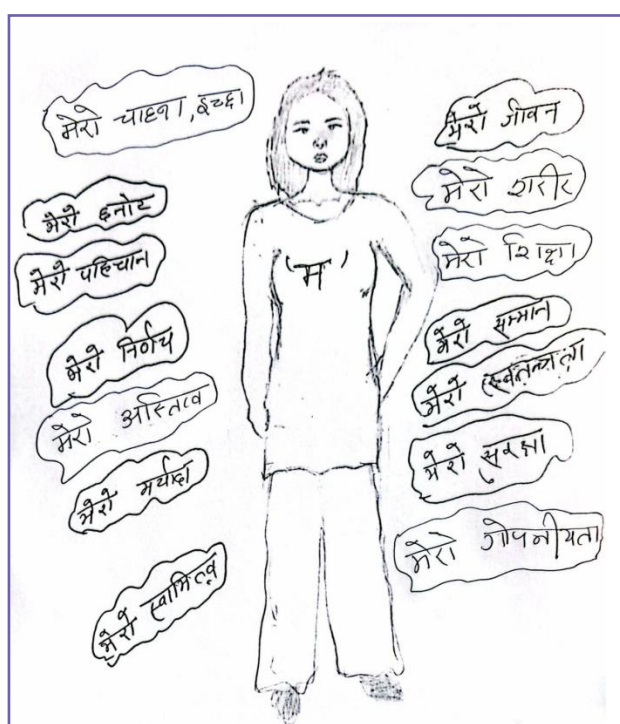 मेरो चाहना, इच्छा
मेरो छनोट
मेरो पहिचान
मेरो निर्णय
मेरो अस्तित्व
मेरो मर्यादा
मेरो स्वामित्व
'म'
मेरो जीवन
मेरो शरीर
मेरो शिक्षा
मेरो सम्मान
मेरो स्वतन्त्रता
मेरो सुरक्षा
मेरो गोपनीयता